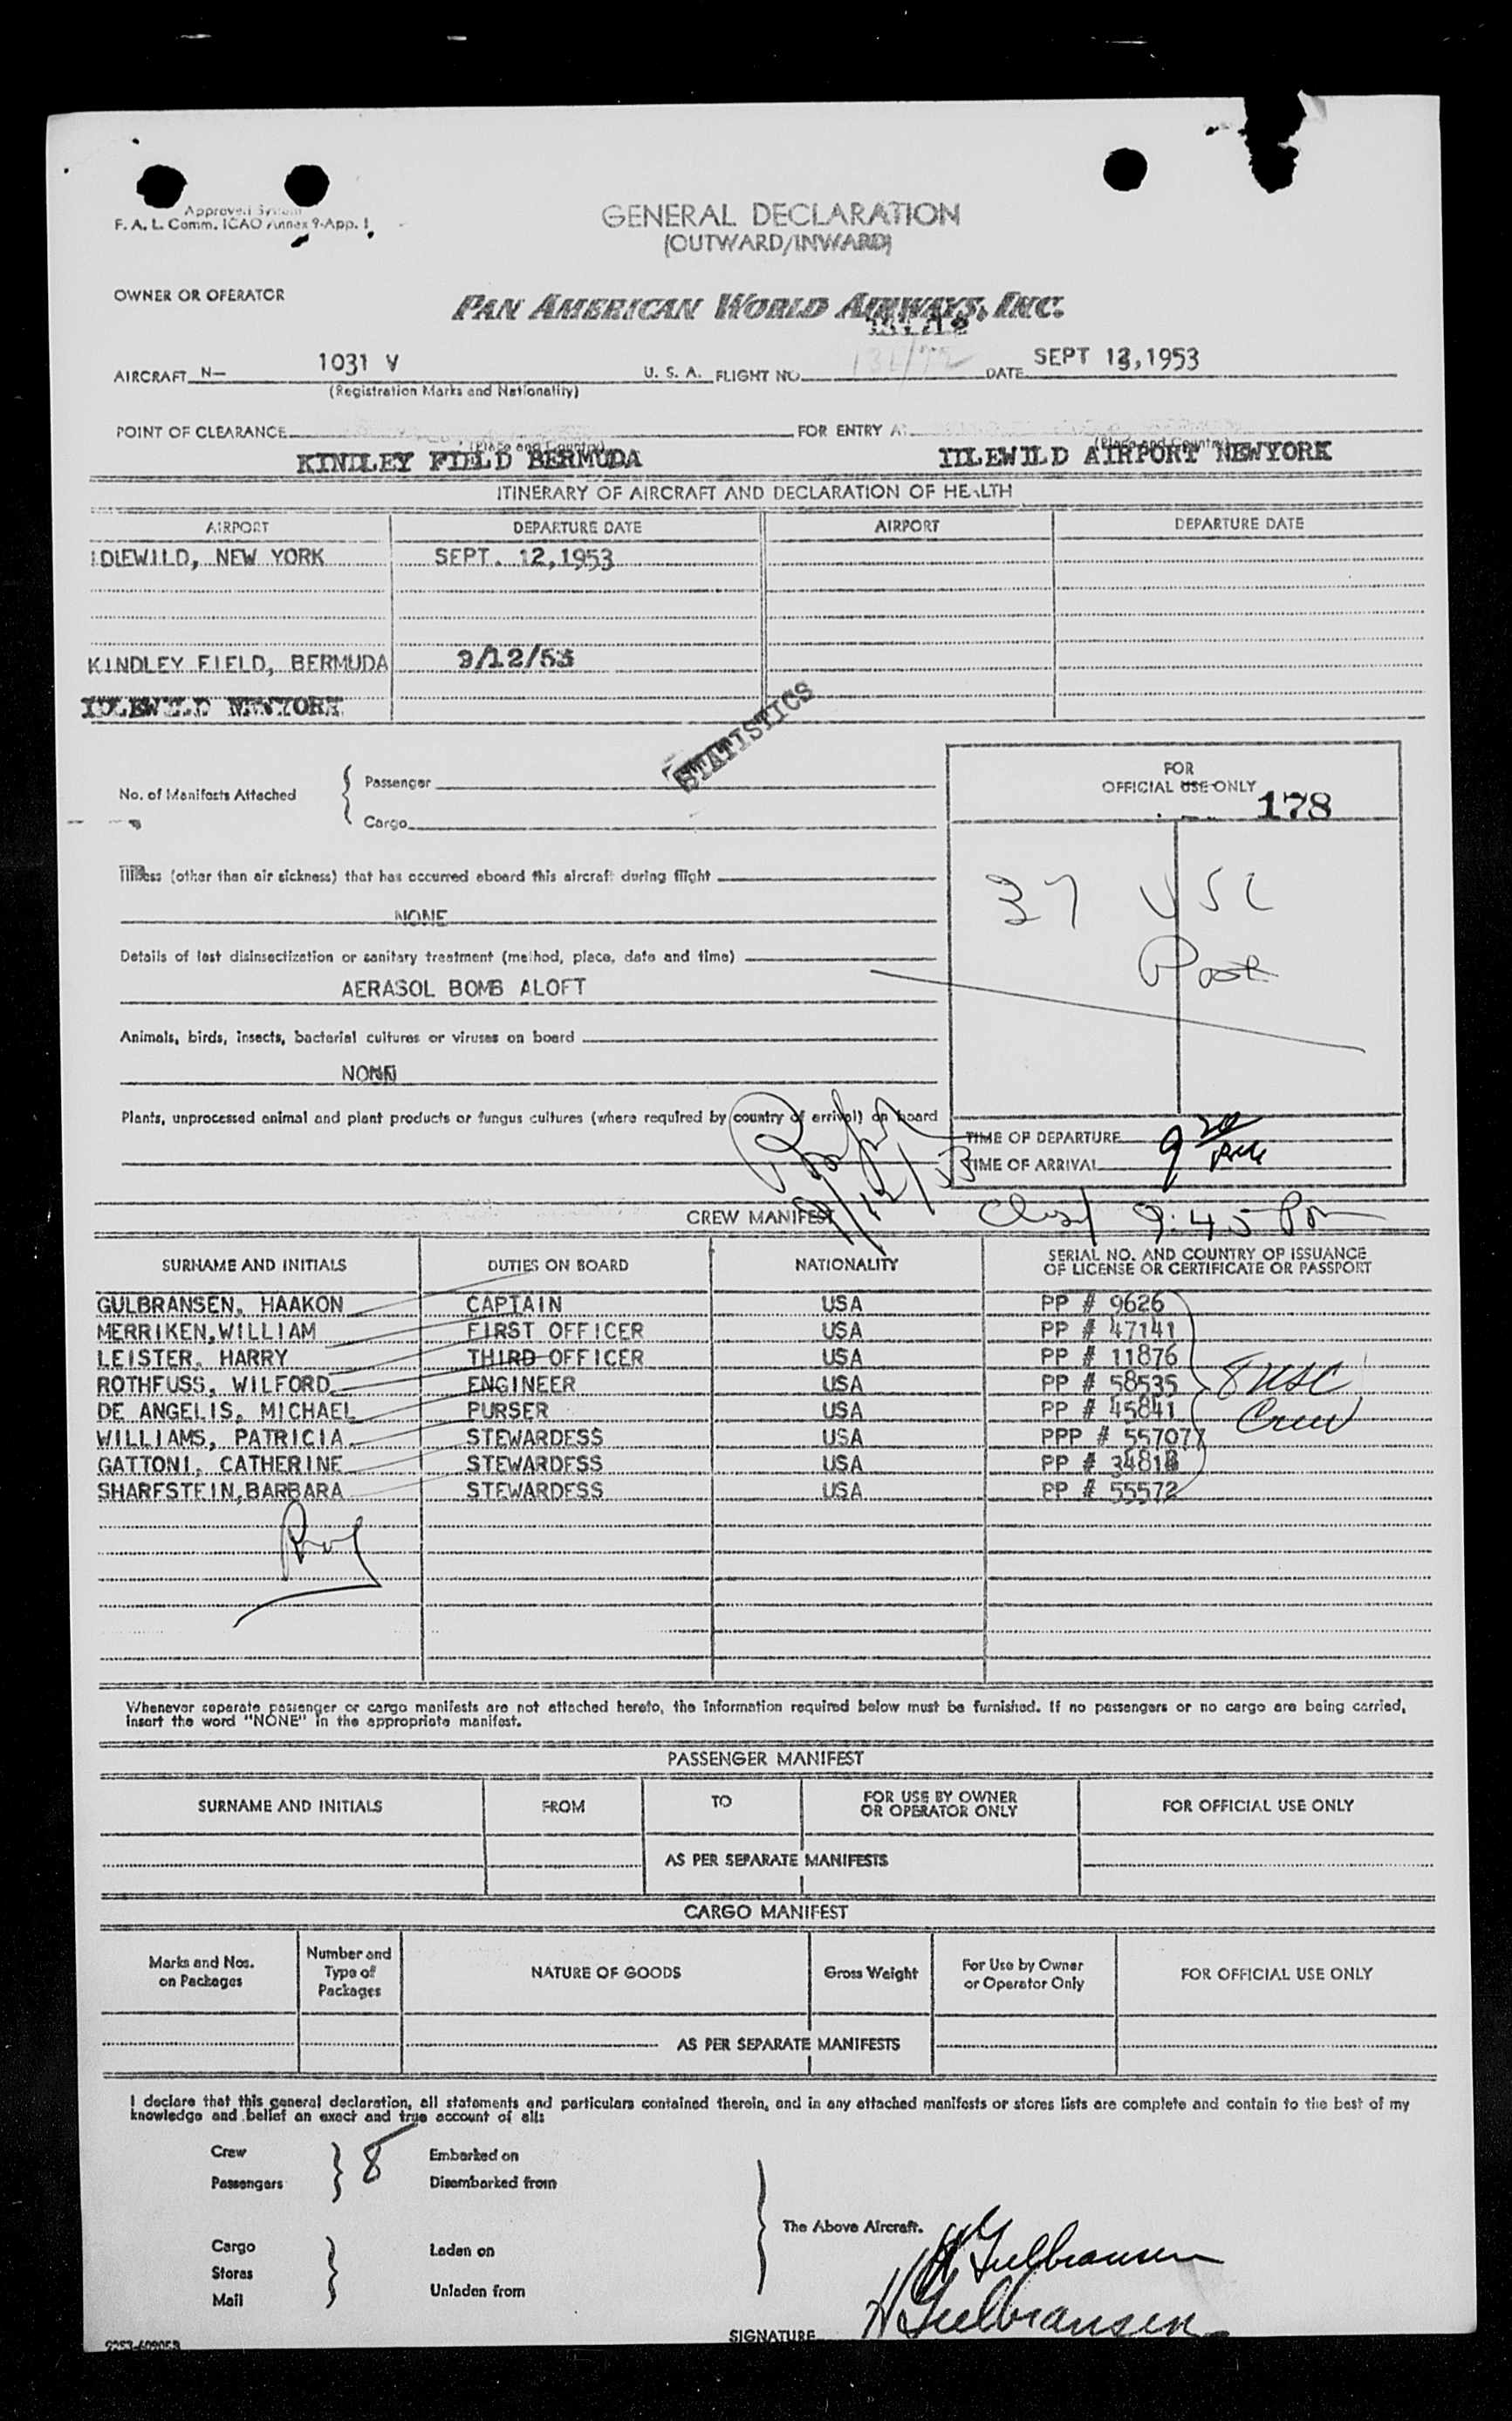 Approved System
F. A. L. Comm. ICAO Annex 9-App. 1
GENERAL DECLARATION
(OUTWARD/INWARD)
OWNER OR OPERATOR
PAN AMERICAN WORLD AIRWAYS, INC.
AIRCRAFT N- 1031 V U. S. A. FLIGHT NO. DATE SEPT 12,1953
(Registration Marks and Nationality)
POINT OF CLEARANCE FOR ENTRY AT
(Place and Country) (Place and Country)
KINDLEY FIELD BERMUDA IDLEWILD AIRPORT NEWYORK
ITINERARY OF AIRCRAFT AND DECLARATION OF HEALTH
AIRPORT DEPARTURE DATE AIRPORT DEPARTURE DATE
IDLEWILD, NEW YORK SEPT. 12,1953
KINDLEY FIELD, BERMUDA 9/12/53
IDLEWILD NEWYORK
STATISTICS
No. of Manifests Attached
Passenger
Cargo
FOR
OFFICIAL USE ONLY
178
37 USC
Pass
Illness (other than air sickness) that has occurred aboard this aircraft during flight
NONE
Details of last disinsectization or sanitary treatment (method, place, date and time)
AERASOL BOMB ALOFT
Animals, birds, insects, bacterial cultures or viruses on board
NONE
Plants, unprocessed animal and plant products or fungus cultures (where required by country of arrival) on board
9/12/53
TIME OF DEPARTURE
TIME OF ARRIVAL 9 20 PM
CREW MANIFEST
9:45 Pm
SURNAME AND INITIALS DUTIES ON BOARD NATIONALITY SERIAL NO. AND COUNTRY OF ISSUANCE
OF LICENSE OR CERTIFICATE OR PASSPORT
GULBRANSEN, HAAKON CAPTAIN USA PP # 9626
MERRIKEN,WILLIAM FIRST OFFICER USA PP # 47141
LEISTER, HARRY THIRD OFFICER USA PP # 11876
ROTHFUSS, WILFORD ENGINEER USA PP # 58535
DE ANGELIS, MICHAEL PURSER USA PP # 45841
WILLIAMS, PATRICIA STEWARDESS USA PPP # 55707
GATTONI, CATHERINE STEWARDESS USA PP # 34818
SHARFSTEIN,BARBARA STEWARDESS USA PP # 55572
8 USC
Crew
Whenever separate passenger or cargo manifests are not attached hereto, the information required below must be furnished. If no passengers or no cargo are being carried,
insert the word "NONE" in the appropriate manifest.
PASSENGER MANIFEST
SURNAME AND INITIALS FROM TO FOR USE BY OWNER
OR OPERATOR ONLY FOR OFFICIAL USE ONLY
AS PER SEPARATE MANIFESTS
CARGO MANIFEST
Marks and Nos.
on Packages
Number and
Type of
Packages
NATURE OF GOODS Gross Weight
For Use by Owner
or Operator Only
FOR OFFICIAL USE ONLY
AS PER SEPARATE MANIFESTS
I declare that this general declaration, all statements and particulars contained therein, and in any attached manifests or stores lists are complete and contain to the best of my
knowledge and belief an exact and true account of all:
Crew 8 Embarked on
Passengers Disembarked from
The Above Aircraft.
Cargo Laden on
Stores
Mail Unladen from
H Gulbransen
SIGNATURE H Gulbransen